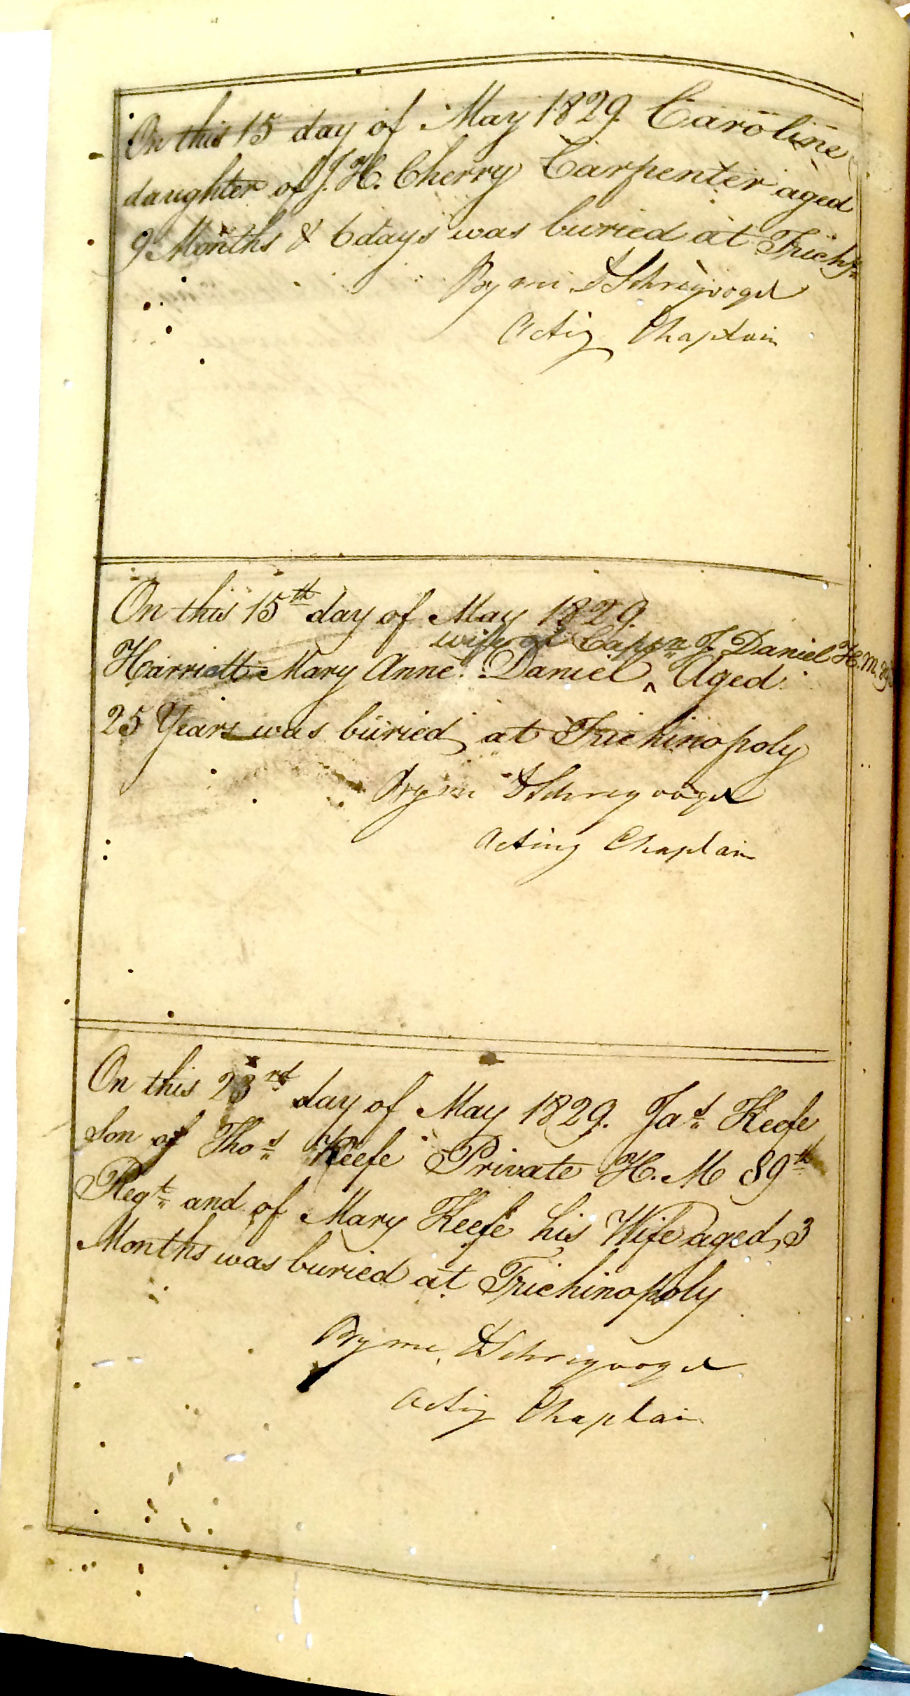 On this 15 day of May 1829 Caroline
daughter of J. H. Cherry Carpenter aged
9 Months & 6 days was buried at Trichy
By me D Schreyvogel
Acting Chaplain
On this 15th day of May 1829
wife of Captn J. Daniel H. M.
Harriett Mary Anne Daniel ^ Aged
25 Years was buried at Trichinopoly
By me D Schreyvogel
Acting Chaplain
On this 23rd day of May 1829. Jas Keefe
Son of Thos Keefe Private H. M 89th
Regt and of Mary Keefe his Wife aged 3
Months was buried at Trichinopoly
By me D Schreyvogel
Acting Chaplain